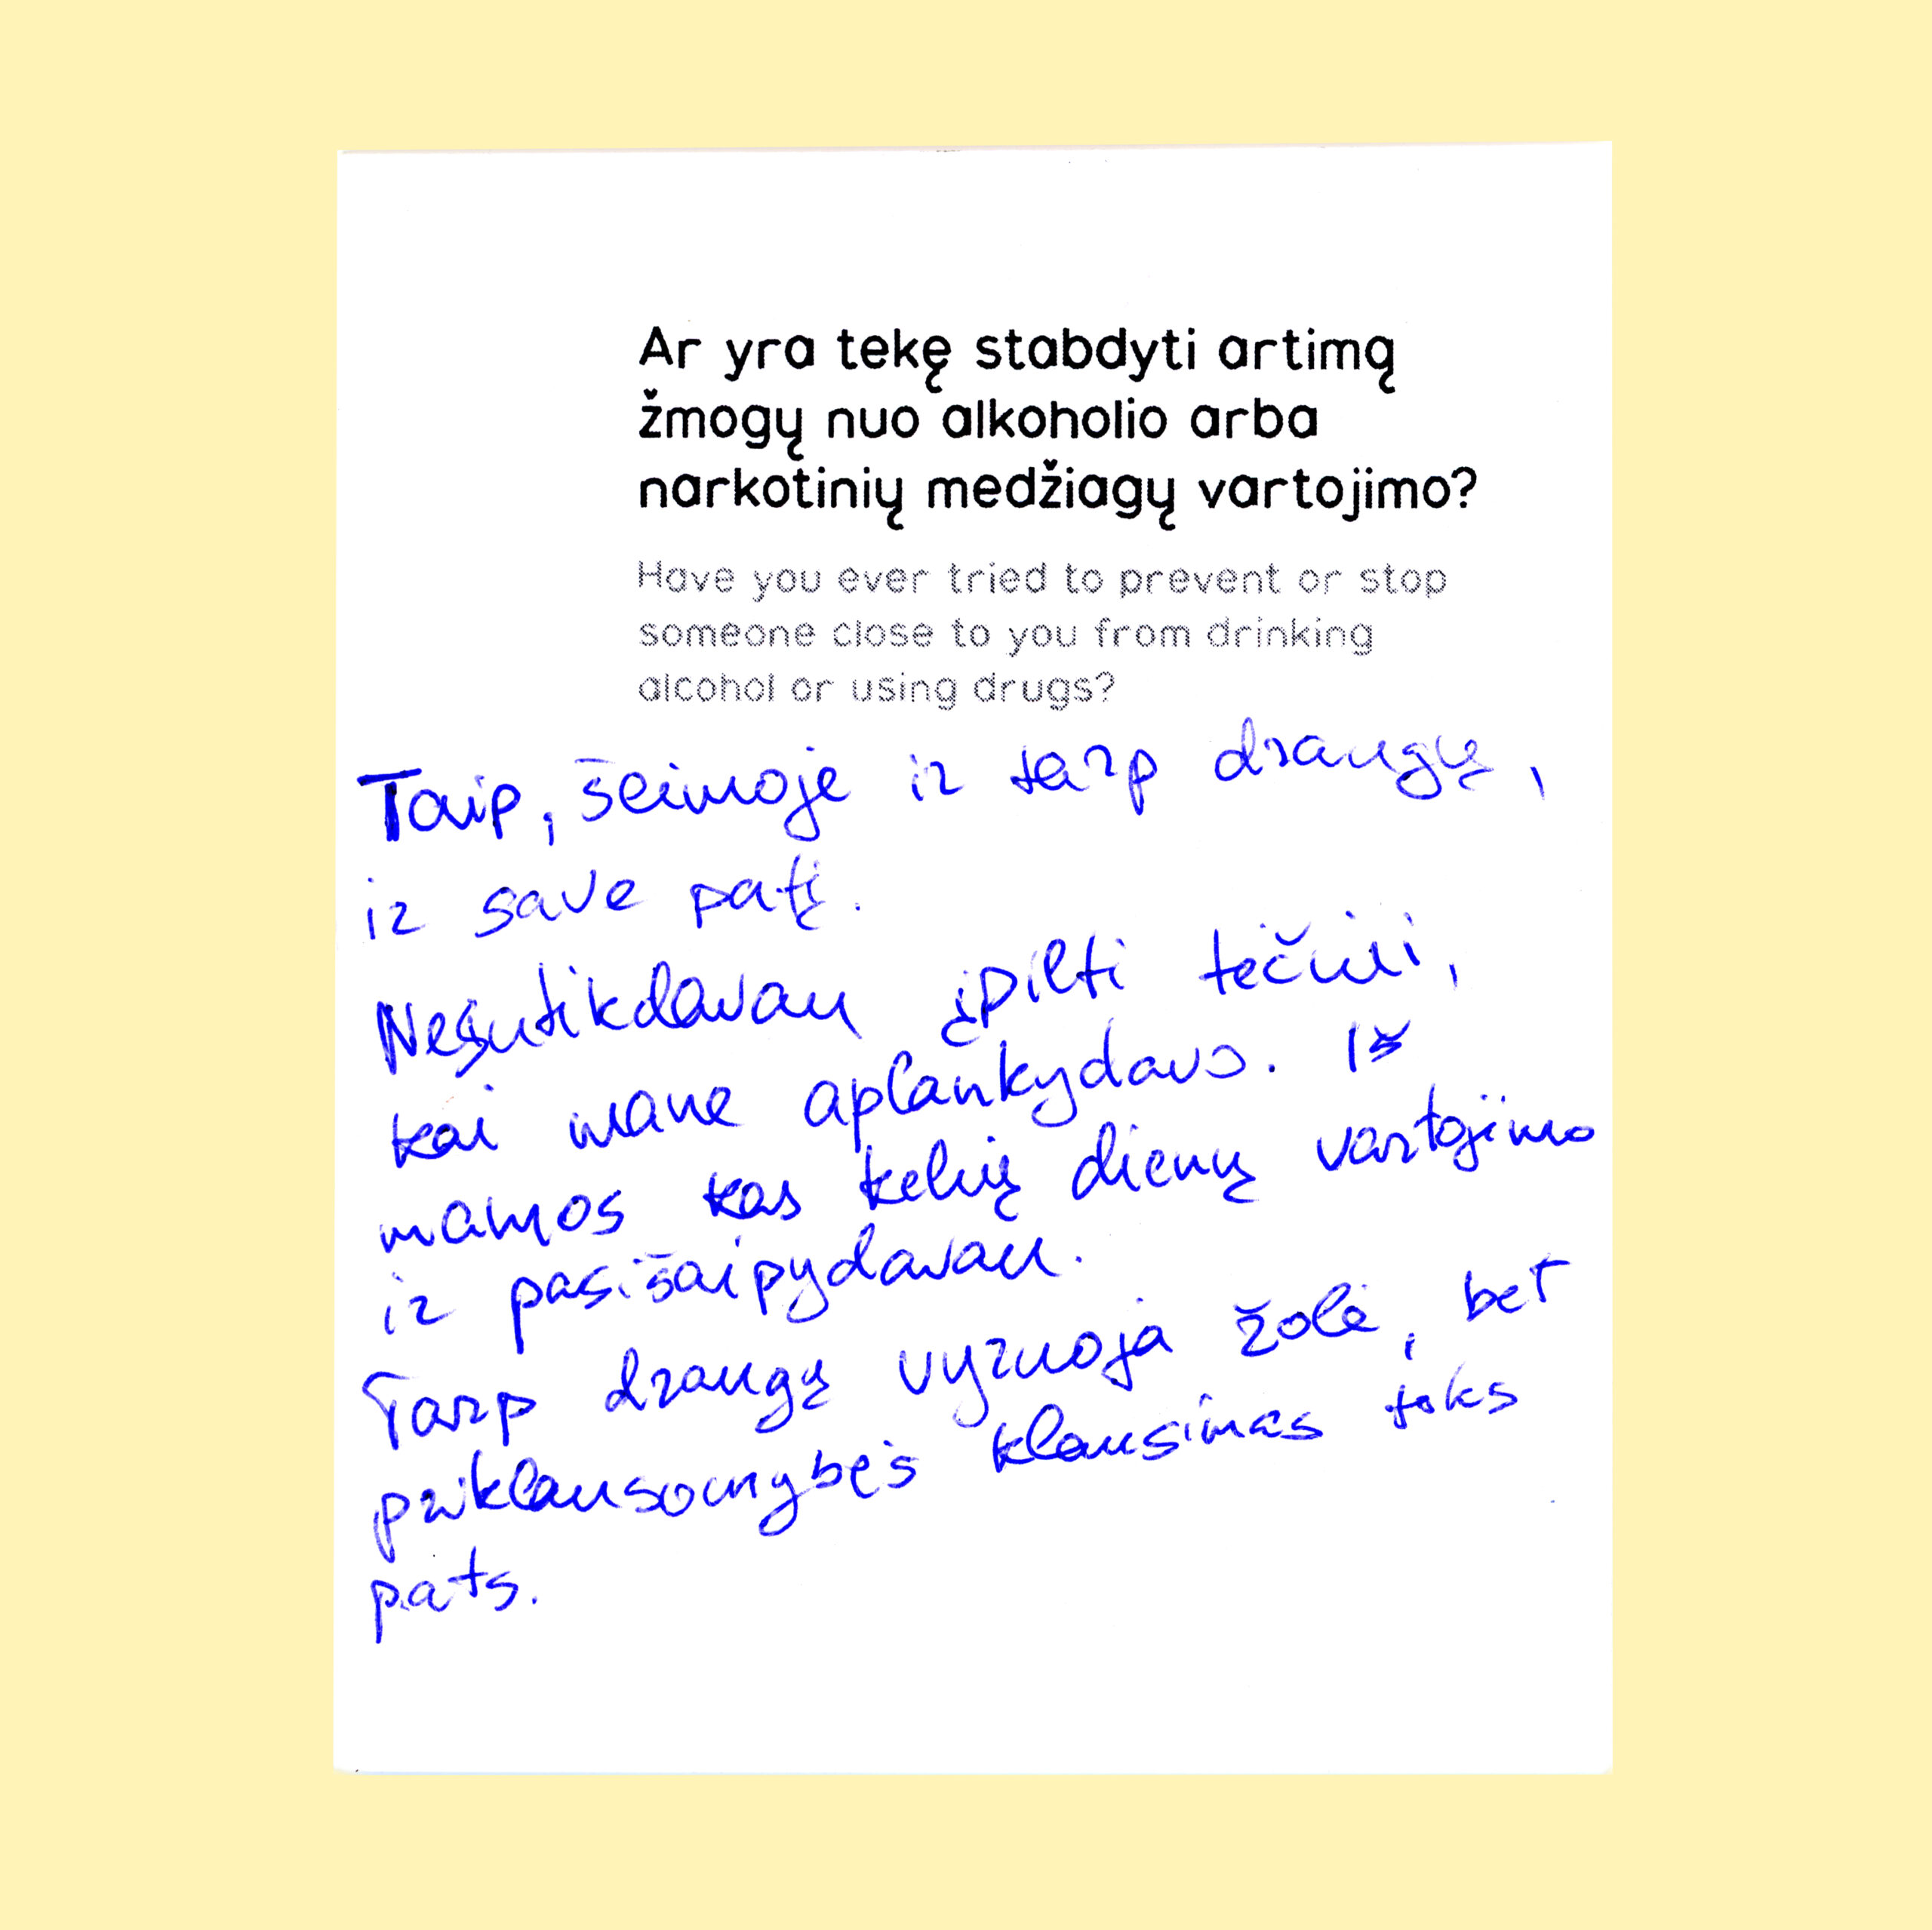 Ar yra tekę stabdyti artimą
žmogų nuo alkoholio arba
narkotinių medžiagų vartojimo?
Have you ever tried to prevent or stop
someone close to you from drinking
alcohol or using drugs?
Taip, šeimoje ir tarp draugų,
ir save patį.
Nesutikdavau įpilti tėčiui,
kai mane aplankydavo. Iš
mamos kas kelių dienų vartojimo
ir pasišaipydavau.
Tarp draugų vyrauoja žolė, bet
priklausomybės klausimas toks
pats.